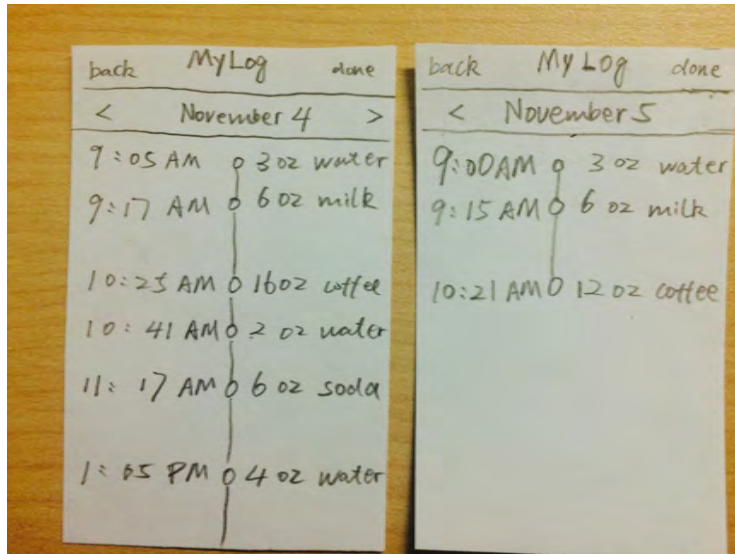 back MyLog done
< November 4 >
9:05 AM 3 oz water
9:17 AM 6 oz milk
10:25 AM 16 oz coffee
10:41 AM 2 oz water
11:17 AM 6 oz soda
1:05 PM 4 oz water
back My Log done
< November 5
9:00 AM 3 oz water
9:15 AM 6 oz milk
10:21 AM 12 oz coffee